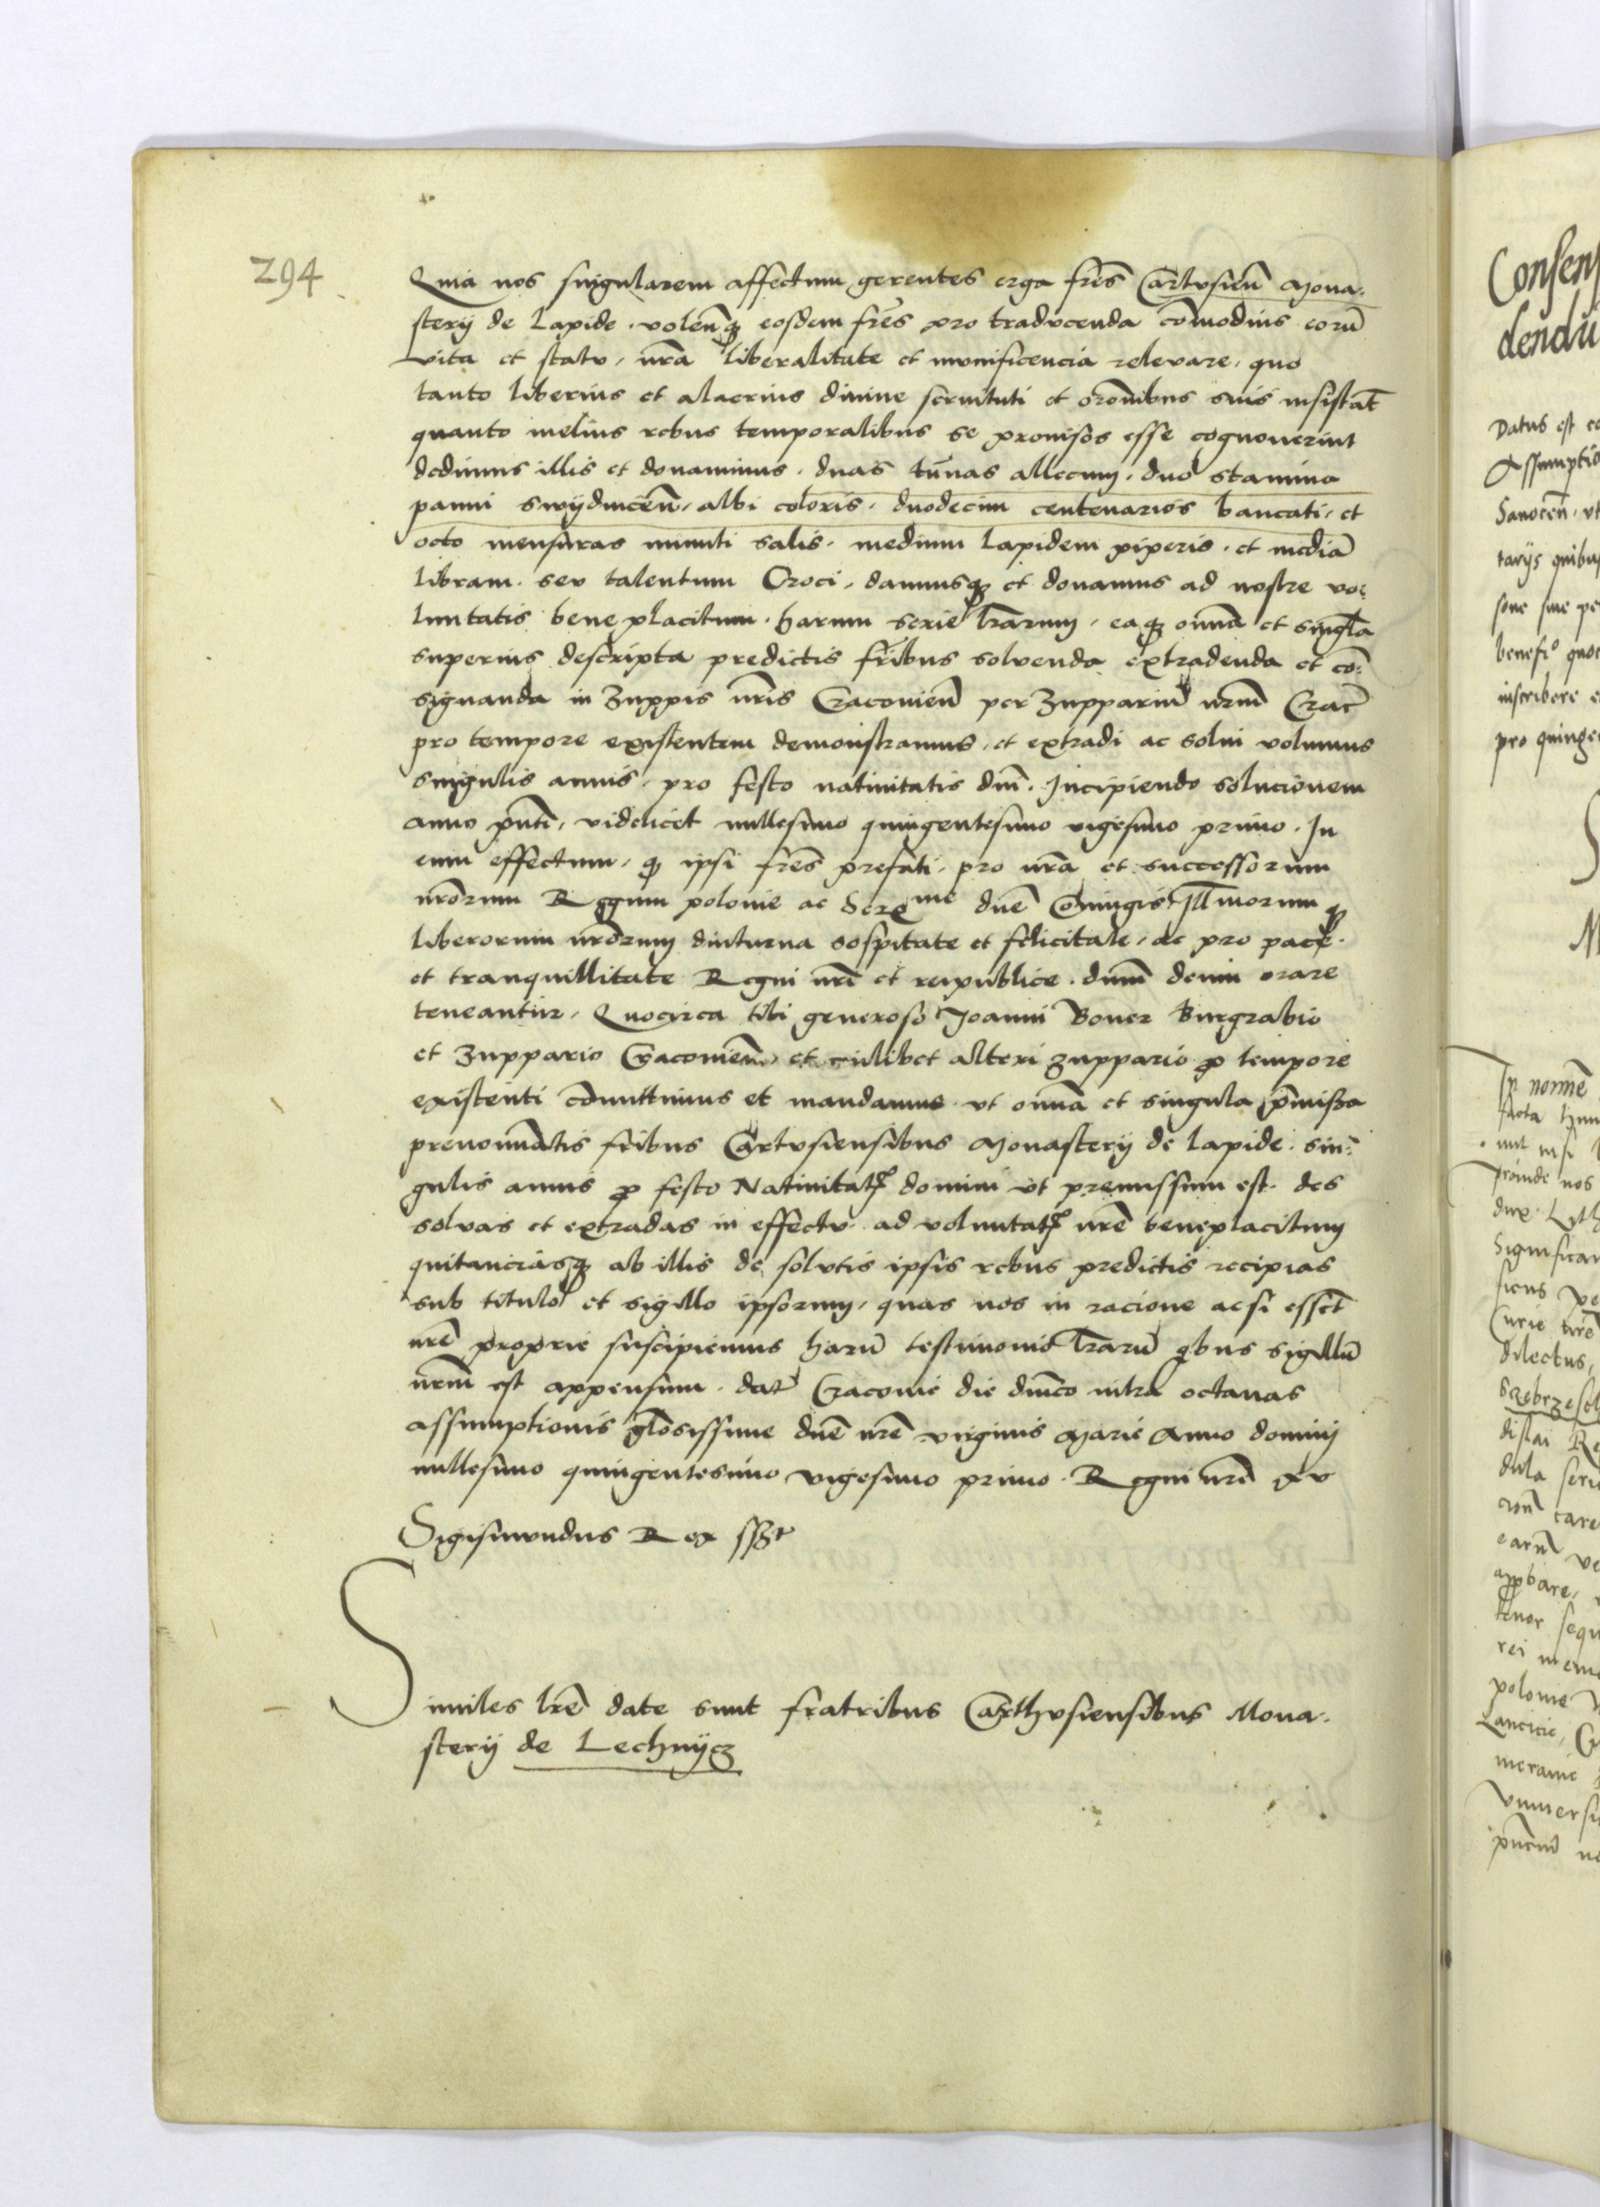 294
Quia nos singularem affectum gerentes erga frēs Cartusieñ Mona-
sterij de Lapide, voleñqȝ eosdem frēs pro traducenda cōmodius eorū
vita et statu, nrā liberalitate et munificencia relevare, quo
tanto liberius et alacrius divine servituti et orōnibus suis insistāt
quanto melius rebus temporalibus se provisos esse cognoverint
dedimus illis et donavimus, duas tūnas allecum, duo stamina
panni swydniceñ, albi coloris, duodecim centenarios bancati, et
octo mensuras minuti salis, medium lapidem piperis, et mediā
libram seu talentum Croci, damusqȝ et donamus ad nostre vo-
luntatis beneplacitum, harum serie lrārum, eaqȝ omnā et singlā
superius descripta predictis frībus solvenda extradenda et cō-
signanda in Zuppis nrīs Cracovieñ per Zuppariū nrūm Crac̄
pro tempore existentem demonstramus, et extradi ac solvi volumus
singulis annis, pro festo nativitatis dnī. Incipiendo solucionem
anno pn̄ti, videlicet millesimo quingentesimo vigesimo primo. In
eum effectum, qȝ ipsi frēs prefati, pro nrā et successorum
nrōrum Regum polonie ac Sereme dnē Coniugis, Illmorumqȝ
liberorum nrōrum diuturna sospitate et felicitate, ac pro pace
et tranquillitate Regni nrī et reipublice, dnūm deum orare
teneantur, Quocirca tibi generoso Joanni Boner Burgrabio
et Zuppario Cracovieñ, et cuilibet alteri zuppario p̱ tempore
existenti cōmittimus et mandamus ut omnā et singula p̄missa
prenomīatis frībus Cartusiensibus Monasterij de Lapide sin-
gulis annis p̱ festo Nativitatꝭ domini ut premissum est des
solvas et extradas in effectu ad voluntatꝭ nrē beneplacitum
quitanciasqȝ ab illis de solutis ipsis rebus predictis recipias
sub titulo et sigillo ipsorum, quas nos in racione ac si essēt
nrē proprie suscipiemus harū testimonio lrārū qbus sigillū
nrūm est appensum. dat̄ Cracovie die dnīco infra octavas
assumptionis glōsissime dnē nrē virginis Marie Anno domini
millesimo quingentesimo vigesimo primo. Regni nrī xv
Sigismundus Rex ssȝt
Similes lrē date sunt fratribus Carthusiensibus Mona-
sterij de Lechnycȝ
Consens
dendū
Datus est
Assumptio
Sanoceñ
tarijs quibus
sone sive
benefi° quo
inscribere
pro quinge
In nomīe
facta
nisi
proinde nos
dux Lith
Significa
Curie nrē
dilectus,
dislai
care
earū
app̱bare,
tenor sequ
rei memo
polonie
Lancicie,
meranie
Universi